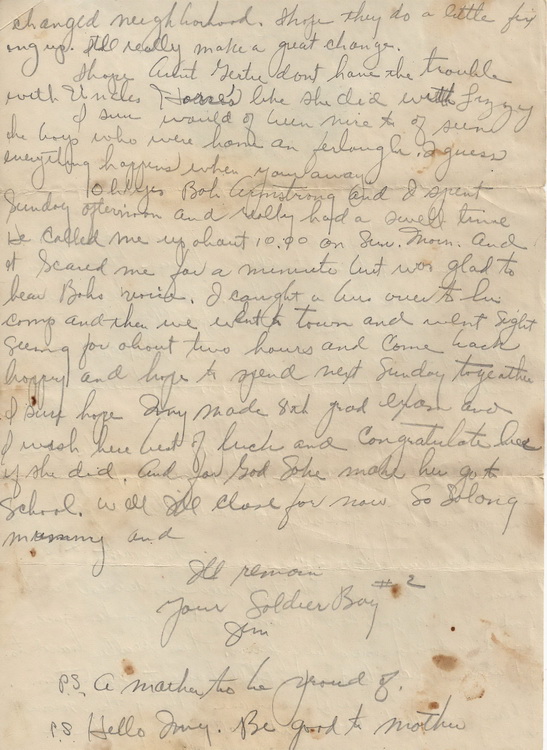 changed neighborhood. I hope they do a little fix
ing up. It'll really make a great change.
I hope Aunt Gertie dont have the trouble
with Uncles Horse's like she did with Lizzy
I sure would of been nice to of seen
the boys who were home on furlough. I guess
everything happens when your away
Oh Yes Bob Armstrong and I spent
Sunday afternoon and really had a swell time
He called me up about 10.00 on Sun. Morn. And
it scared me for a minute but was glad to
hear Bobs voice. I caught a bus over to his
camp and then we went to town and went sight
seeing for about two hours and come back
happy and hope to spend next Sunday together
I sure hope made 8th grad exam and
I wish here best of luck and Congratulate her
if she did. And for God Sake make her go to
School. Well I'll close for now So Solong
mummy and
I'll remain
Your Soldier Boy #2
Jim
P.S. A mother to be proud of.
P.S Hello . Be good to mother